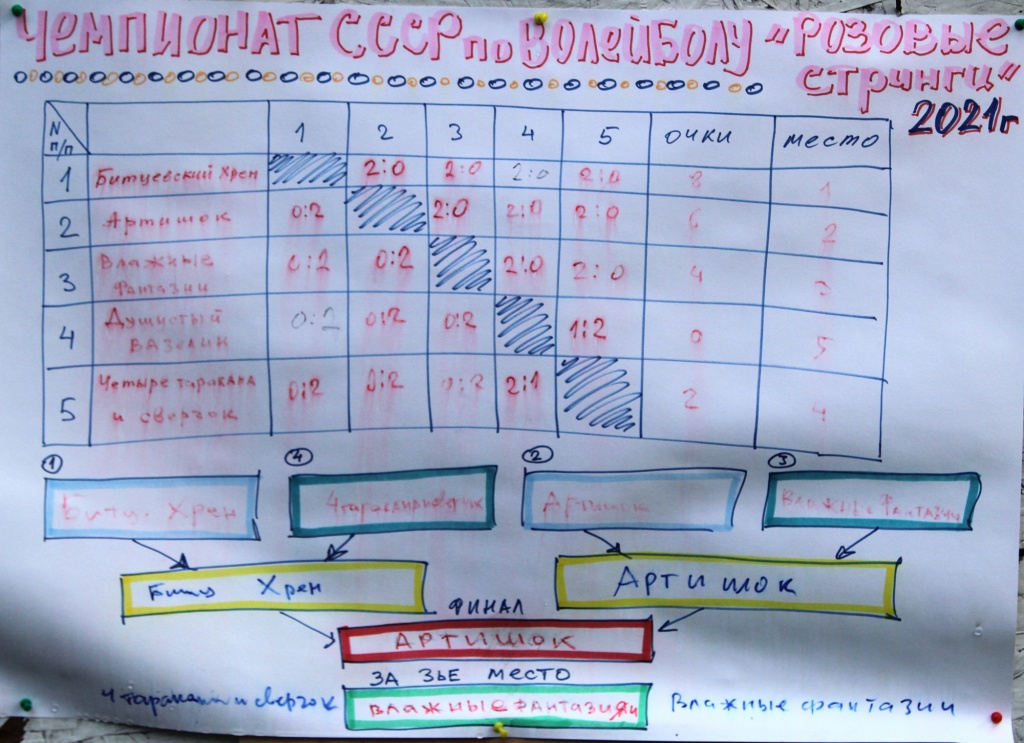 Чемпионат СССР по волейболу "Розовые
стринги"
2021г
N п/п 1 2 3 4 5 очки место
1 Битцевский Хрен 2:0 2:0 2:0 2:0 8 1
2 Артишок 0:2 2:0 2:0 2:0 6 2
3 Влажные фантазии 0:2 0:2 2:0 2:0 4 3
4 Душистый вазелин 0:2 0:2 0:2 1:2 0 5
5 Четыре таракана и сверчок 0:2 0:2 0:2 2:1 2 4
1 4 2 3
Битц. Хрен Артишок Влажные фантазии
Битц Хрен Артишок
ФИНАЛ
АРТИШОК
ЗА 3ЬЕ МЕСТО
4 таракана и сверчок Влажные фантазии Влажные фантазии